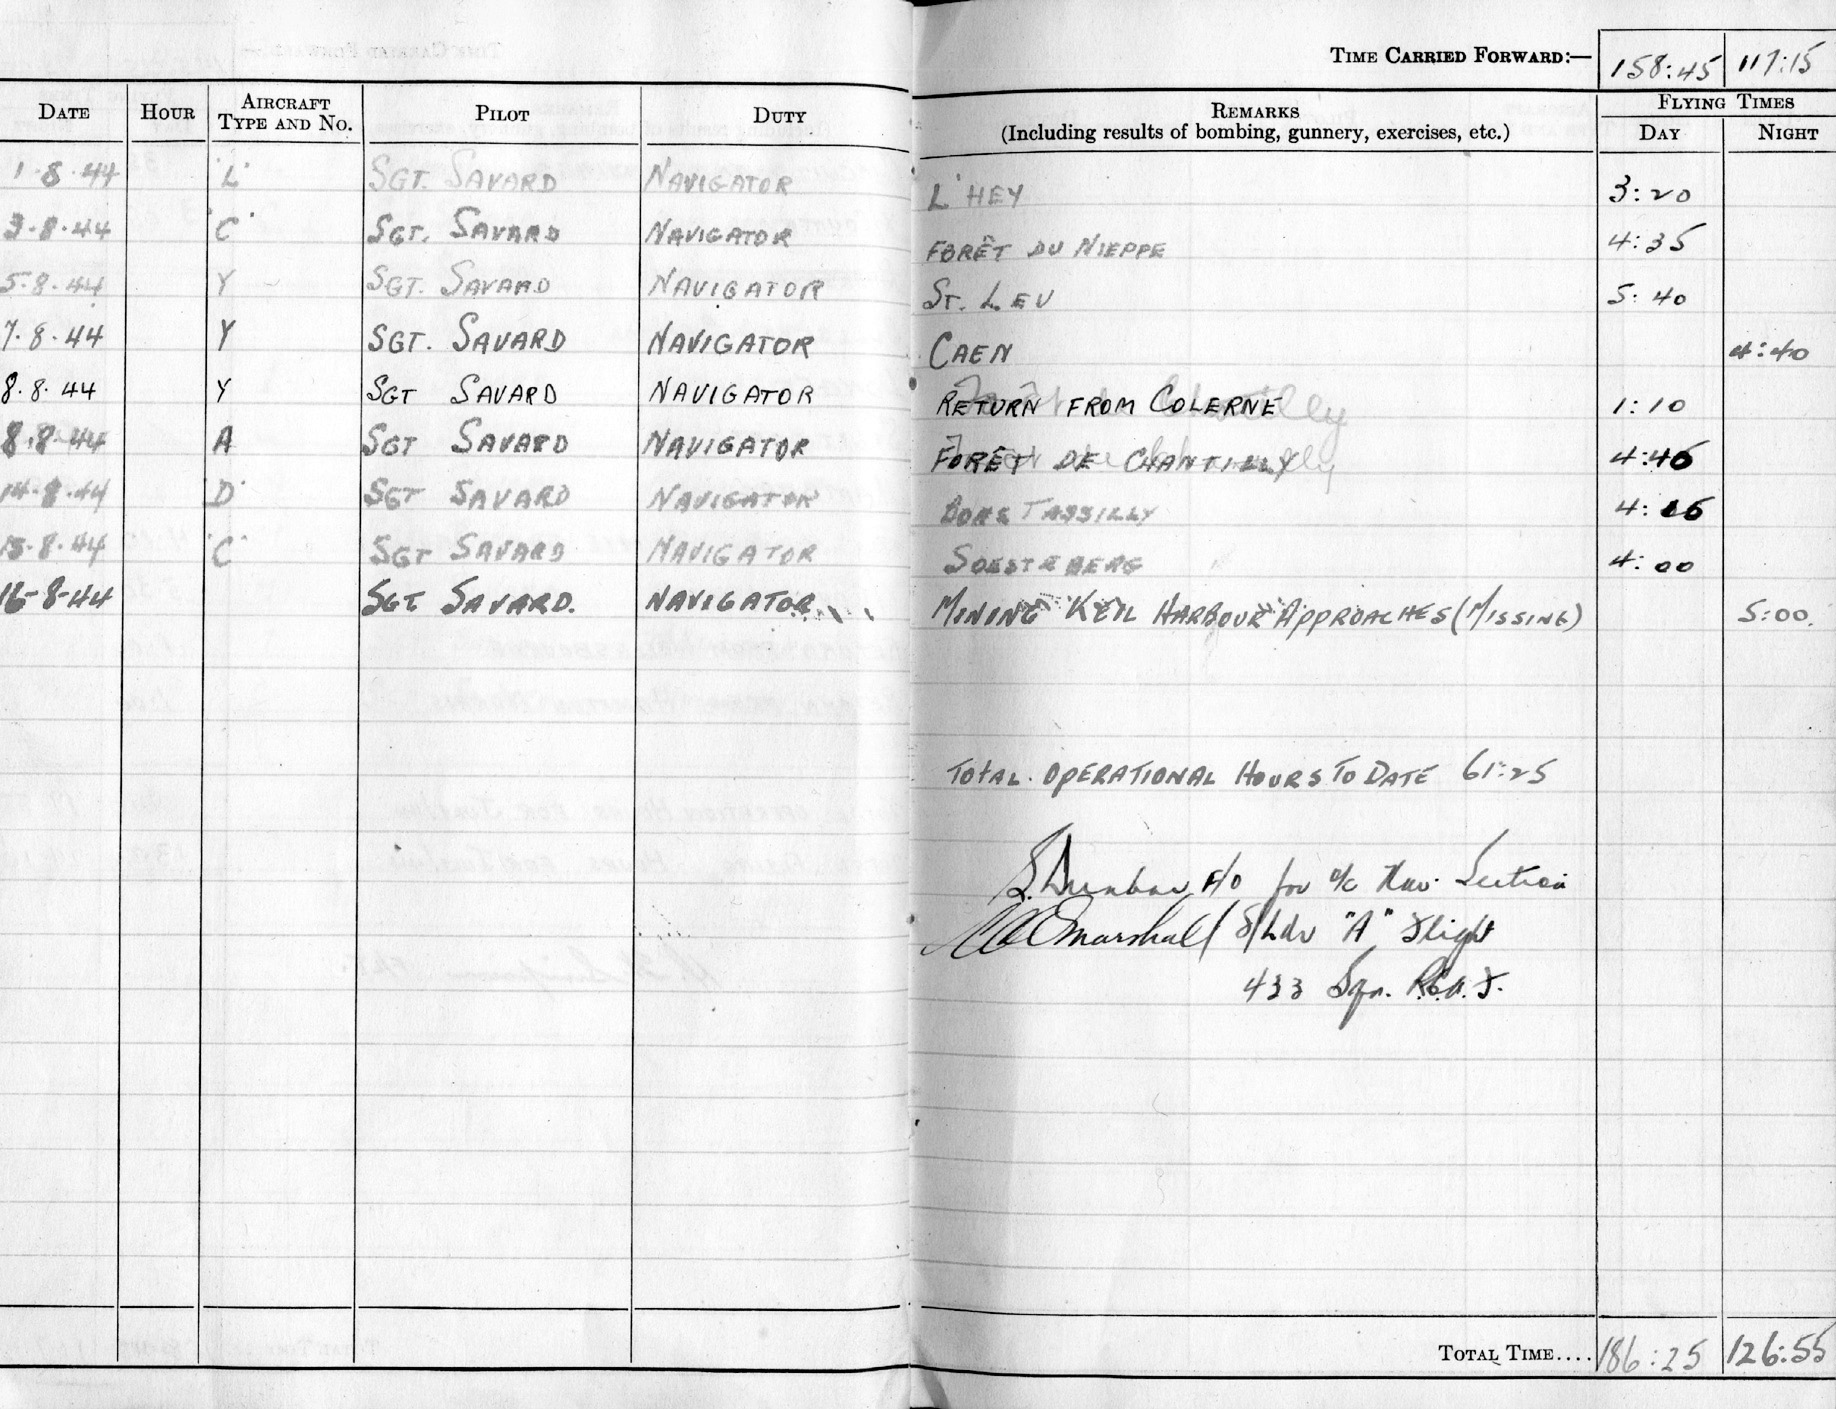 TIME CARRIED FORWARD:— 158:45 117:15
DATE HOUR AIRCRAFT TYPE AND NO. PILOT DUTY REMARKS (Including results of bombing, gunnery, exercises, etc.) FLYING TIMES DAY NIGHT
1·8·44 "L" SGT. SAVARD NAVIGATOR L'HEY 3:20
3·8·44 "C" SGT. SAVARD NAVIGATOR FORÊT DU NIEPPE 4:35
5·8·44 Y SGT. SAVARD NAVIGATOR ST. LEU 5:40
7·8·44 Y SGT. SAVARD NAVIGATOR CAEN 4:40
8·8·44 Y SGT SAVARD NAVIGATOR RETURN FROM COLERNE 1:10
8·8·44 A SGT SAVARD NAVIGATOR FORÊT DE CHANTILLY 4:
14·8·44 "D" SGT SAVARD NAVIGATOR TASSILLY 4:
15·8·44 "C" SGT SAVARD NAVIGATOR SOESTEBERG 4:00
16-8-44 SGT SAVARD. NAVIGATOR MINING KEIL HARBOUR APPROACHES (MISSING) 5:00
TOTAL OPERATIONAL HOURS TO DATE 61:25
Dunbar F/O for o/c Nav. Section
Marshall S/Ldr "A" Flight
433 Sqn. R.C.A.F.
TOTAL TIME.... 186:25 126:55